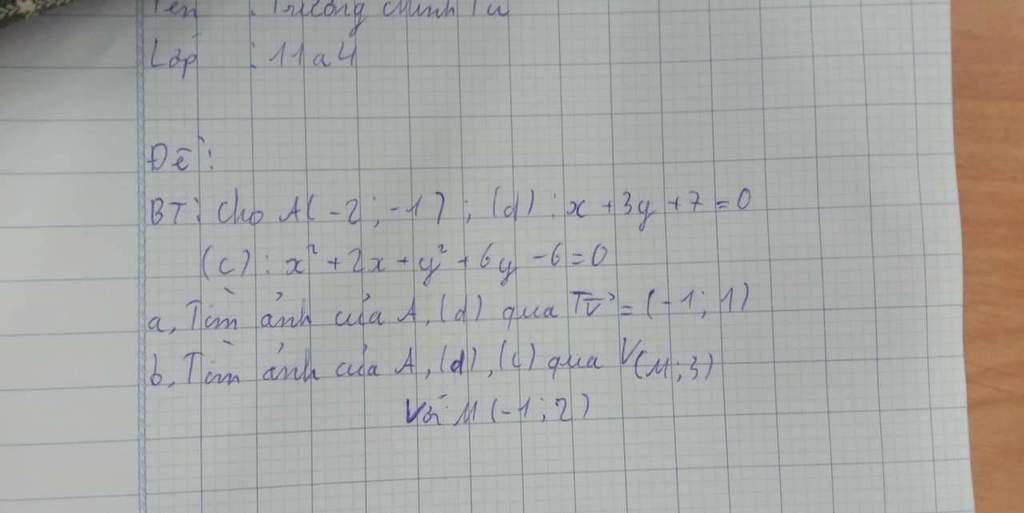 Tên : Trương Minh Tú
Lớp : 11a4
Đề:
BT: Cho A(-2;-1) ; (d) : x + 3y + 7 = 0
(c) : x² + 2x + y² + 6y - 6 = 0
a, Tìm ảnh của A, (d) qua Tv⃗ = (-1; 1)
b, Tìm ảnh của A, (d), (c) qua V(M;3)
Với M(-1;2)